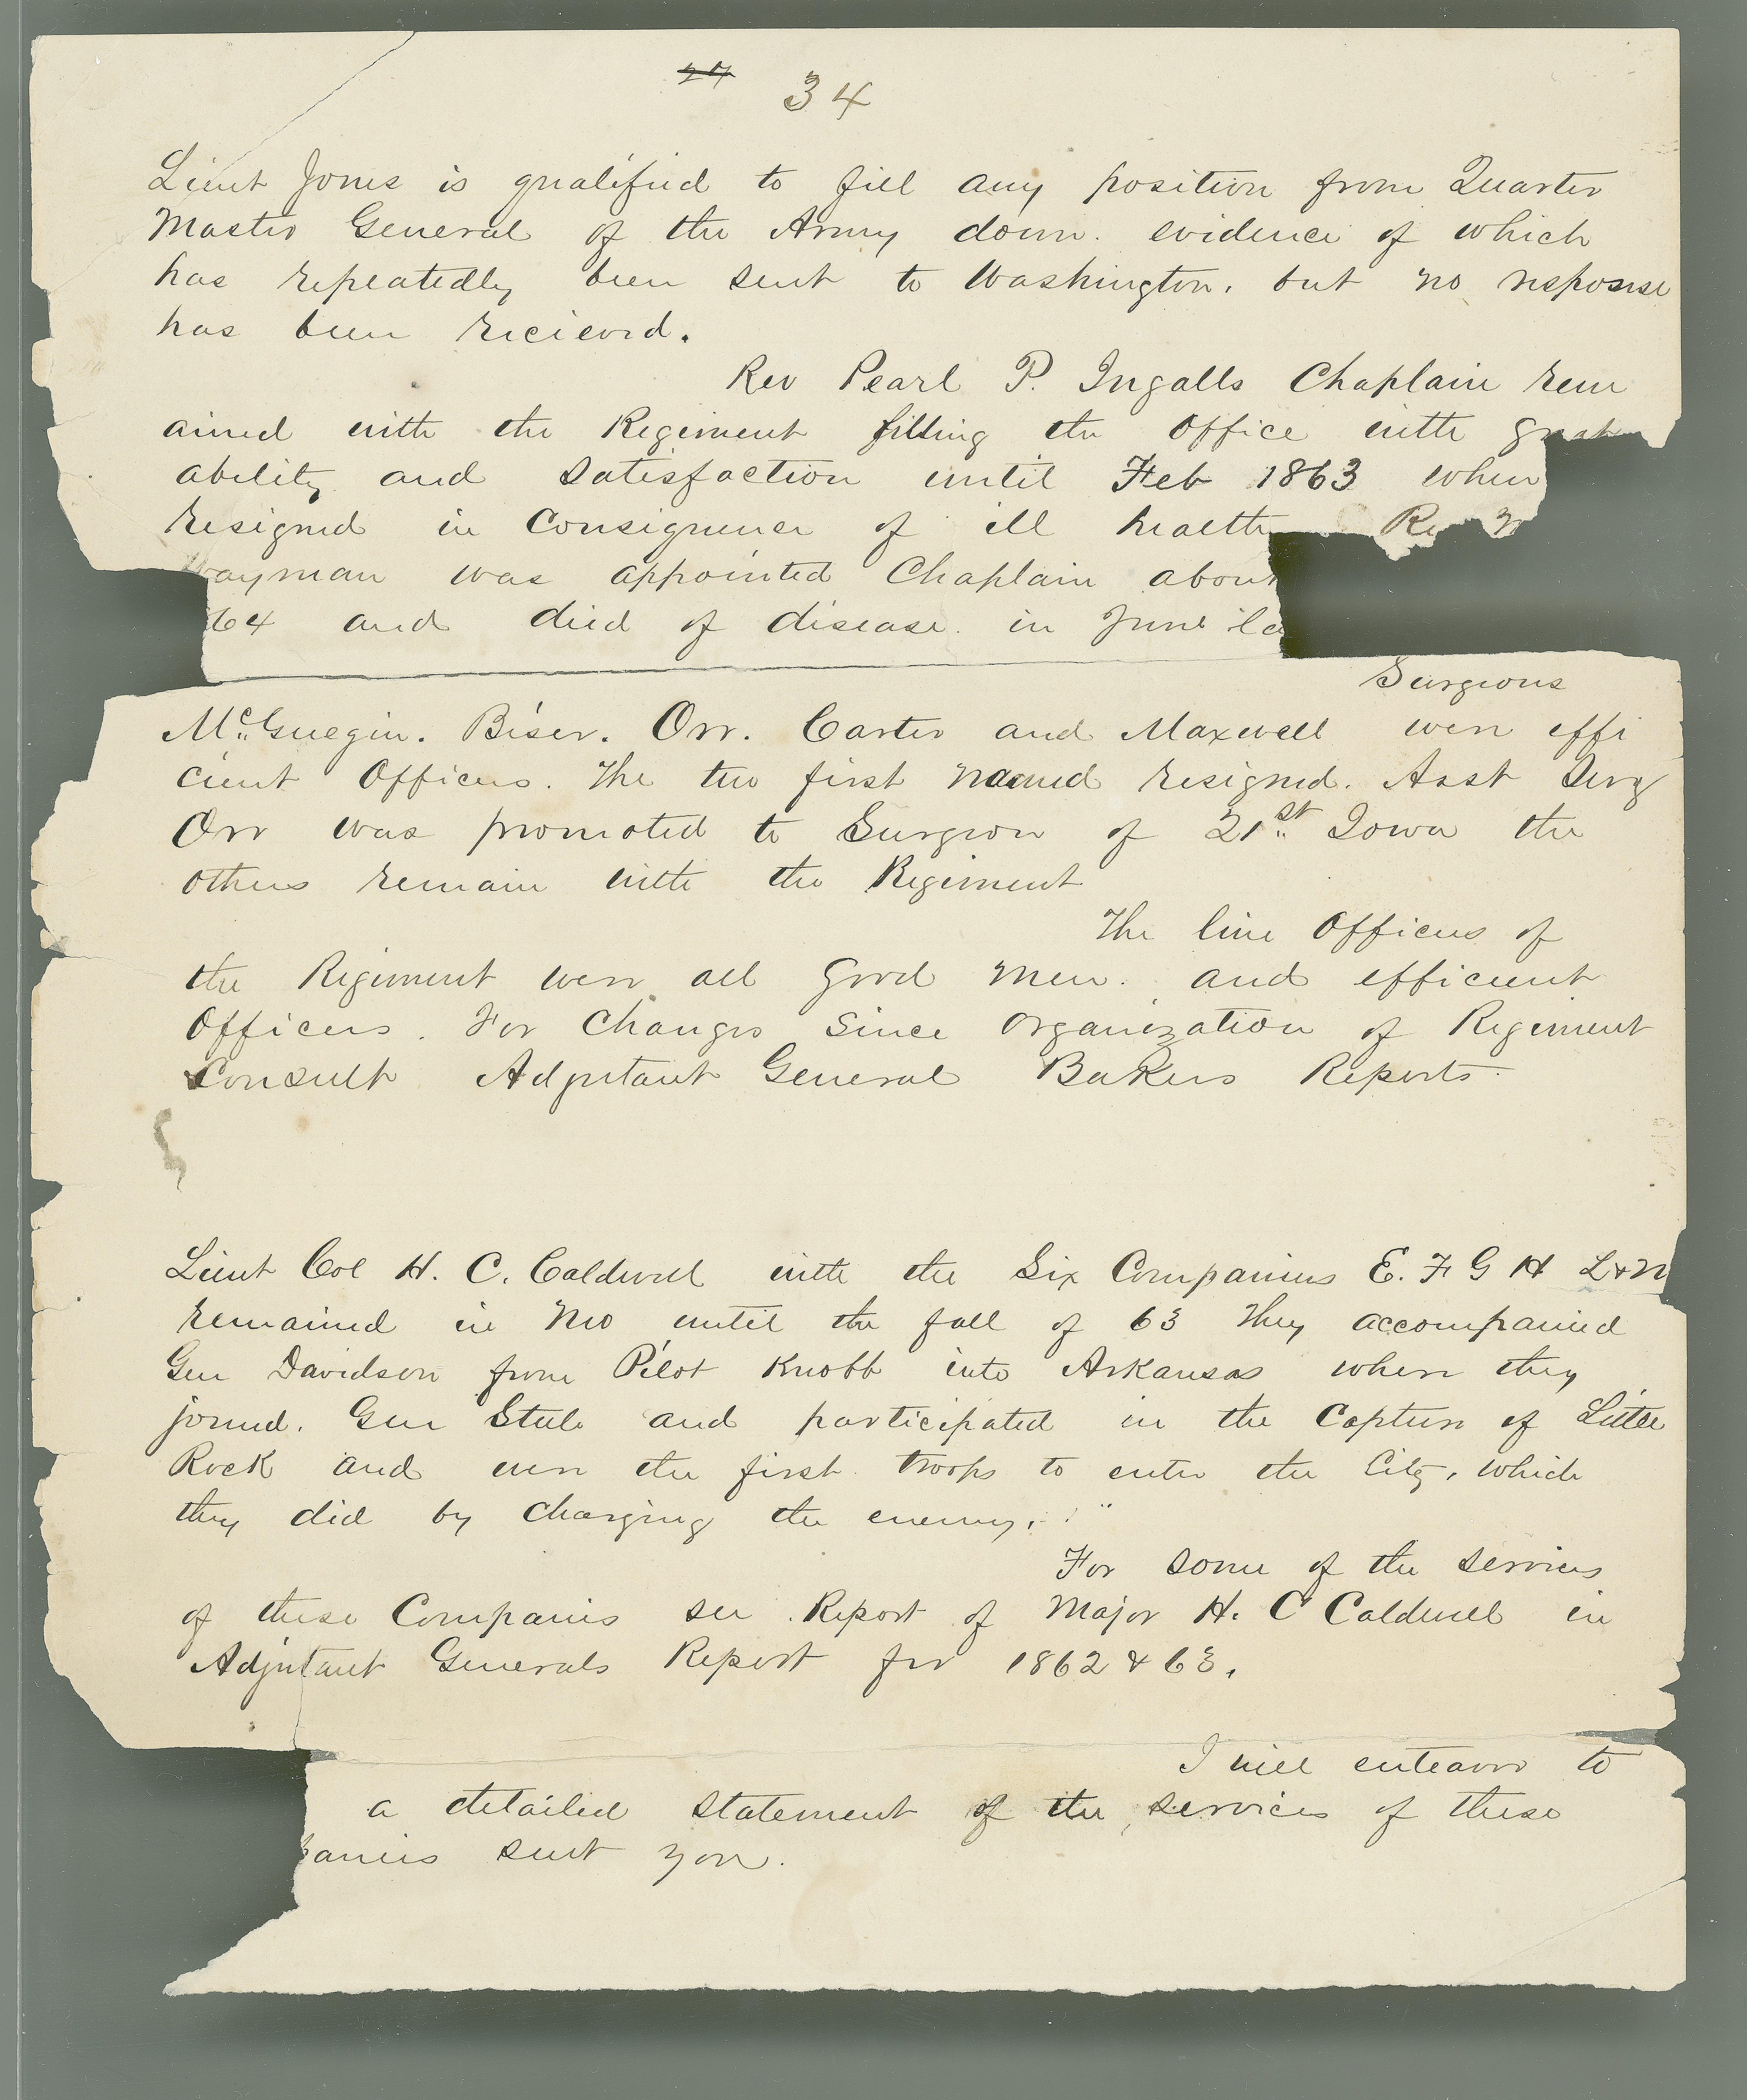 34
Lieut Jones is qualified to fill any position from Quarter
Master General of the Army down. evidence of which
has repeatedly been sent to Washington. but no response
has been recieved.
Rev Pearl P. Ingalls Chaplain rem
ained with the Regiment filling the Office with great
ability and satisfaction until Feb 1863 when
resigned in Consequence of ill health Rev
ayman was appointed Chaplain about
64 and died of disease. in June la
Surgeons
McGuegin. Biser. Orr. Carter and Maxwell were effi
cient Officers. The two first named resigned. Asst Surg
Orr was promoted to Surgeon of 21st Iowa the
others remain with the Regiment
The line Officers of
the Regiment were all good men. and efficient
Officers. For Changes since organization of Regiment
Consult Adjutant General Bakers Reports.
Lieut Col H. C. Caldwell with the Six Companies E. F G H L & M
remained in Mo until the fall of 63 They accompanied
Gen Davidson from Pilot Knobb into Arkansas where they
joined. Gen Steele and participated in the Capture of Little
Rock and were the first troops to enter the City, which
they did by charging the enemy.
For some of the services
of these Companies see Report of Major H. C Caldwell in
Adjutant Generals Report for 1862 & 63.
I will enteavor to
a detailed statement of the services of these
panies sent you.